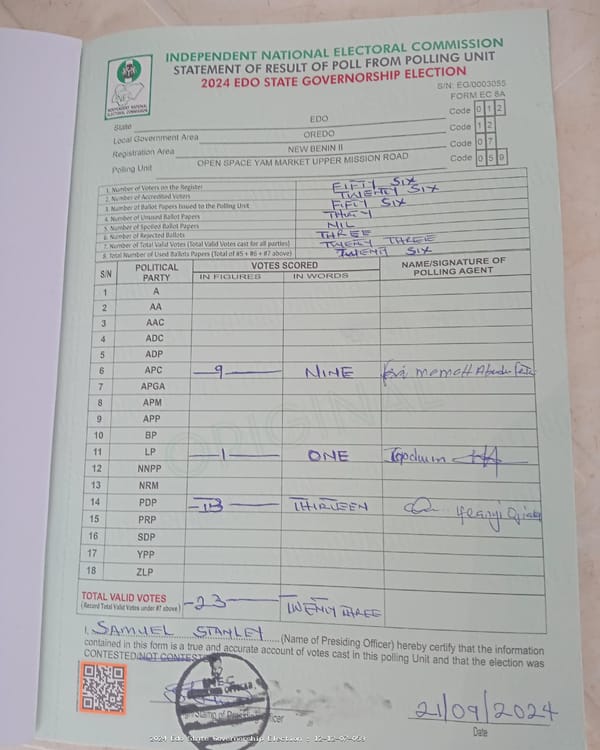 INDEPENDENT NATIONAL ELECTORAL COMMISSION
STATEMENT OF RESULT OF POLL FROM POLLING UNIT
2024 EDO STATE GOVERNORSHIP ELECTION
S/N: EG/0003055
FORM EC 8A
INDEPENDENT NATIONAL ELECTORAL COMMISSION
State EDO Code 0 1 2
Local Government Area OREDO Code 1 2
Registration Area NEW BENIN II Code 0 7
Polling Unit OPEN SPACE YAM MARKET UPPER MISSION ROAD Code 0 5 9
1. Number of Voters on the Register FIFTY SIX
2. Number of Accredited Voters TWENTY SIX
3. Number of Ballot Papers Issued to the Polling Unit FIFTY SIX
4. Number of Unused Ballot Papers THIRTY
5. Number of Spoiled Ballot Papers NIL
6. Number of Rejected Ballots THREE
7. Number of Total Valid Votes (Total Valid Votes cast for all parties) TWENTY THREE
8. Total Number of Used Ballots Papers (Total of #5 + #6 + #7 above) TWENTY SIX
S/N POLITICAL PARTY VOTES SCORED NAME/SIGNATURE OF POLLING AGENT
IN FIGURES IN WORDS
1 A
2 AA
3 AAC
4 ADC
5 ADP
6 APC 9 NINE
7 APGA
8 APM
9 APP
10 BP
11 LP 1 ONE
12 NNPP
13 NRM
14 PDP 13 THIRTEEN
15 PRP
16 SDP
17 YPP
18 ZLP
ORIGINAL
TOTAL VALID VOTES 23 TWENTY THREE
(Record Total Valid Votes under #7 above)
I, SAMUEL STANLEY (Name of Presiding Officer) hereby certify that the information
contained in this form is a true and accurate account of votes cast in this polling Unit and that the election was
CONTESTED/NOT CONTESTED
INEC
21/09/2024
Date
2024 Edo State Governorship Election - 12-12-07-059